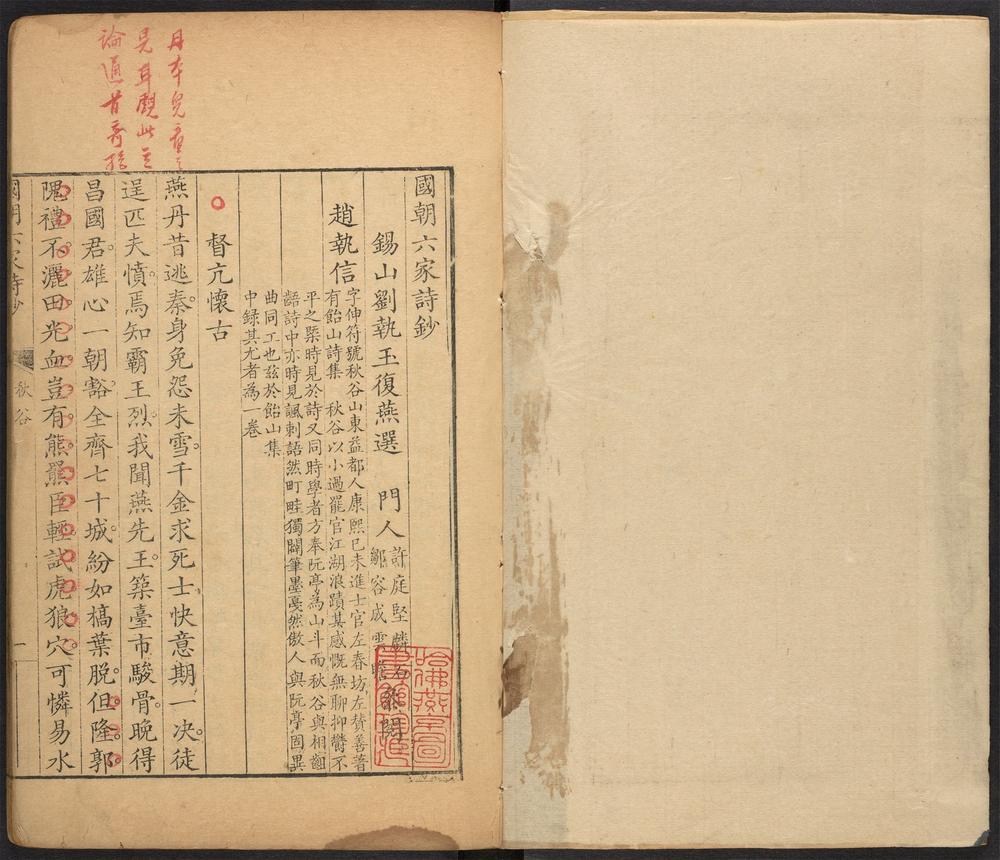 國朝六家詩鈔
錫山劉執玉復燕選 門人
許庭堅麟石
鄒容成雲瞻
參閱
趙執信
字伸符號秋谷山東益都人康熙己未進士官左春坊左贊善著
有飴山詩集 秋谷以小過罷官江湖浪蹟其感慨無聊抑鬱不
平之槩時見於詩又同時學者方奉阮亭為山斗而秋谷與相齟
齬詩中亦時見諷刺語然町畦獨闢筆墨戞然傲人與阮亭固異
曲同工也茲於飴山集
中録其尤者為一卷
督亢懷古
燕丹昔逃秦身免怨未雪千金求死士快意期一决徒
逞匹夫憤焉知霸王烈我聞燕先王築臺市駿骨晚得
昌國君雄心一朝豁全齊七十城紛如槁葉脱但隆郭
隗禮不灑田光血豈有熊羆臣輕試虎狼穴可憐易水
國朝六家詩鈔
秋谷
一
論通首
哈佛燕京圖
書館